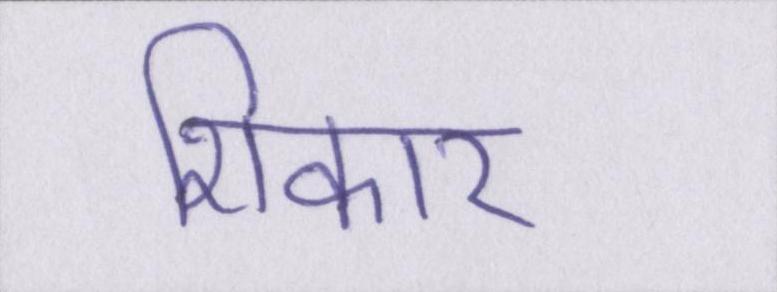 शिकार